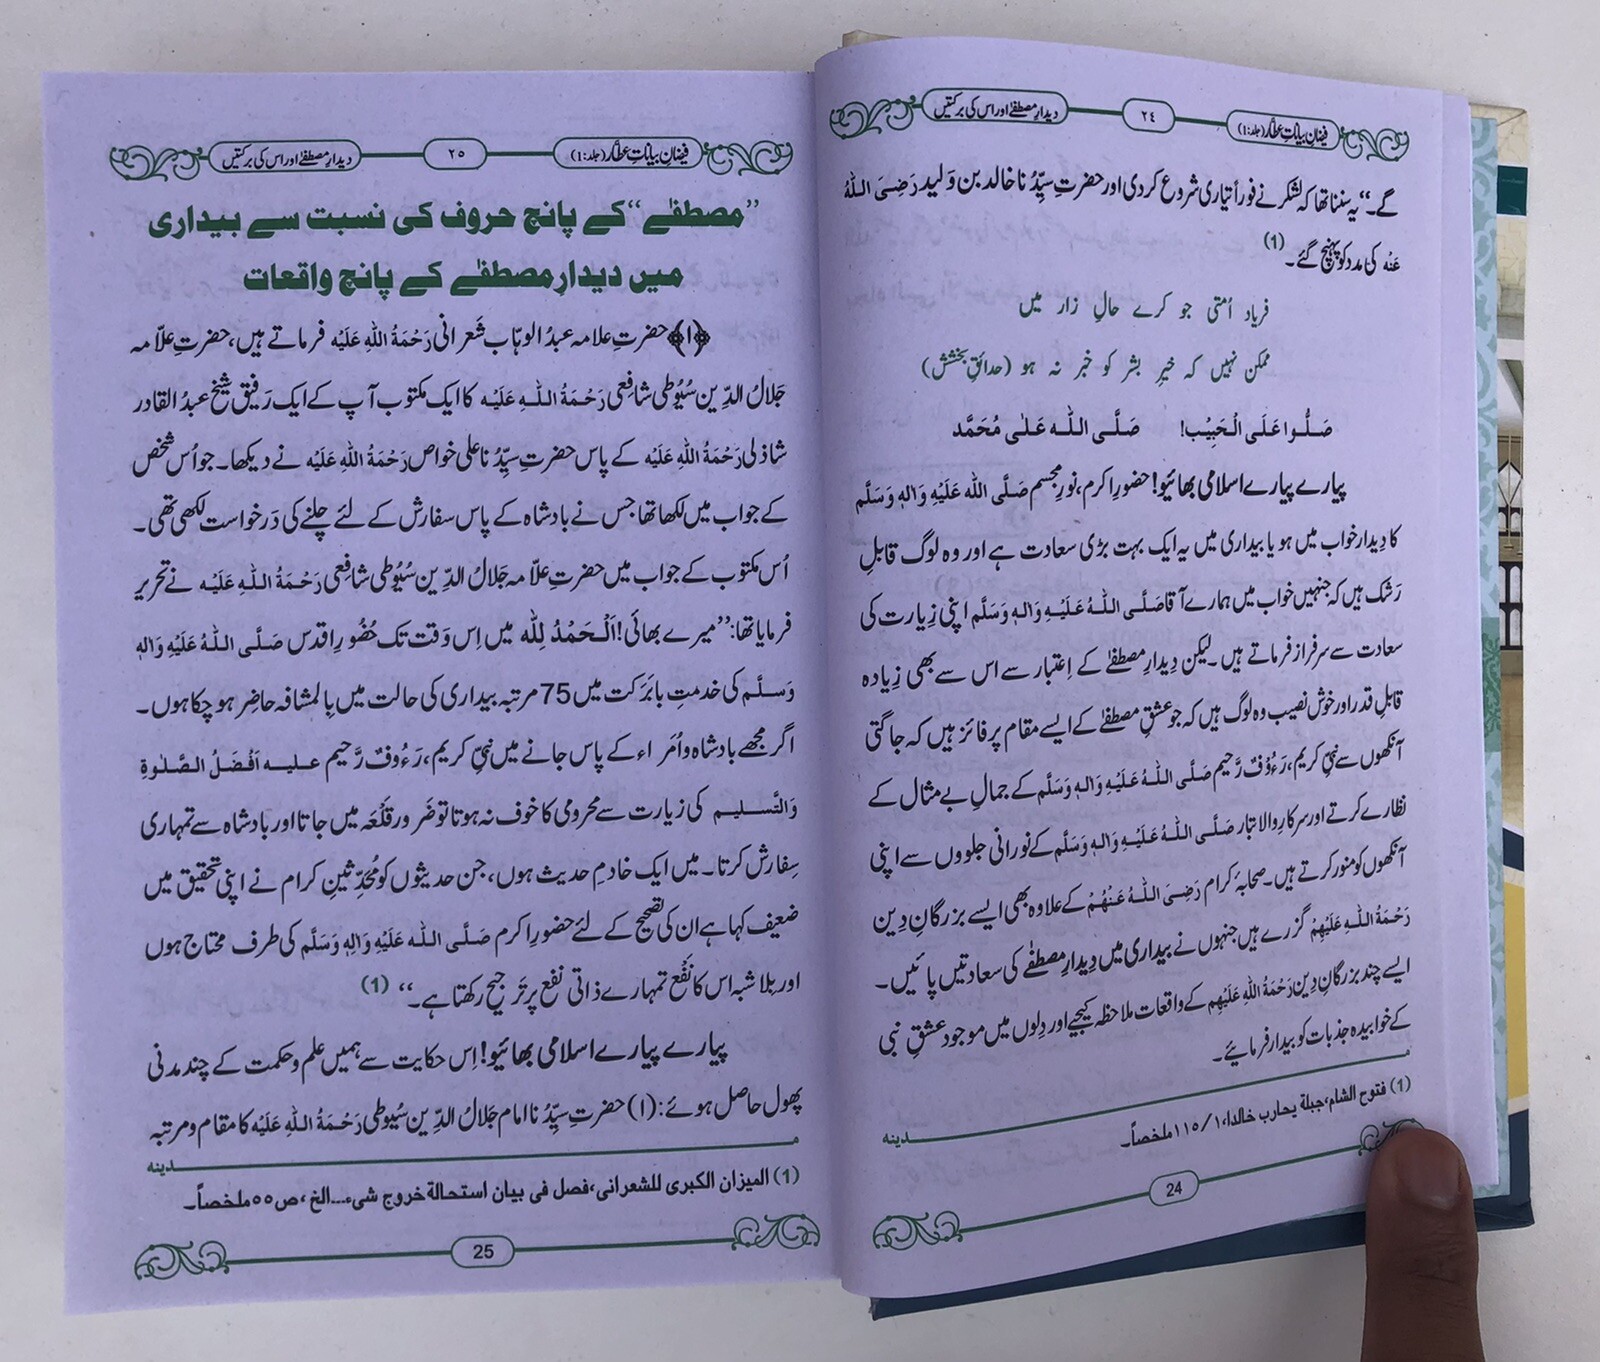 فیضانِ بیاناتِ عطّار (جلد:1)
٢٤
دیدارِ مصطفٰے اور اس کی برکتیں
گے۔‘‘ یہ سننا تھا کہ لشکر نے فوراً تیاری شروع کردی اور حضرتِ سیِّدُنا خالد بن وَلید رَضِیَ اللّٰہُ
عَنْہ کی مدد کو پہنچ گئے۔ (1)
فریاد اُمتی جو کرے حالِ زار میں
ممکن نہیں کہ خیرِ بشر کو خبر نہ ہو (حدائقِ بخشش)
صَلُّوا عَلَی الْحَبِیْب! صَلَّی اللّٰہ عَلٰی مُحَمَّد
پیارے پیارے اسلامی بھائیو! حضورِ اکرم، نورِ مجسم صَلَّی اللّٰہ عَلَیْہِ وَاٰلِہٖ وَسَلَّم
کا دِیدار خواب میں ہو یا بیداری میں یہ ایک بہت بڑی سعادت ہے اور وہ لوگ قابلِ
رَشک ہیں کہ جنہیں خواب میں ہمارے آقا صَلَّی اللّٰہُ عَلَیْہِ وَاٰلِہٖ وَسَلَّم اپنی زِیارت کی
سعادت سے سرفراز فرماتے ہیں۔ لیکن دِیدارِ مصطفٰے کے اِعتبار سے اس سے بھی زِیادہ
قابلِ قدر اور خوش نصیب وہ لوگ ہیں کہ جو عشقِ مصطفٰے کے ایسے مقام پر فائز ہیں کہ جاگتی
آنکھوں سے نبیِّ کریم، رَءُوْفٌ رَّحیم صَلَّی اللّٰہُ عَلَیْہِ وَاٰلِہٖ وَسَلَّم کے جمالِ بے مثال کے
نظارے کرتے اور سرکارِ والا تبار صَلَّی اللّٰہُ عَلَیْہِ وَاٰلِہٖ وَسَلَّم کے نورانی جلووں سے اپنی
آنکھوں کو منور کرتے ہیں۔ صحابۂ کرام رَضِیَ اللّٰہُ عَنْہُمْ کے علاوہ بھی ایسے بزرگانِ دِین
رَحْمَۃُ اللّٰہِ عَلَیْہِمْ گزرے ہیں جنہوں نے بیداری میں دِیدارِ مصطفٰے کی سعادتیں پائیں۔
ایسے چند بزرگانِ دِین رَحْمَۃُ اللّٰہِ عَلَیْہِم کے واقعات ملاحظہ کیجیے اور دِلوں میں موجود عشقِ نبی
کے خوابیدہ جذبات کو بیدار فرمائیے۔
مدینہ
(1) فتوح الشام، جبلة یحارب خالدا، ١/١١٥ ملخصاً۔
24
فیضانِ بیاناتِ عطّار (جلد:1)
٢٥
دیدارِ مصطفٰے اور اس کی برکتیں
’’مصطفٰے‘‘ کے پانچ حروف کی نسبت سے بیداری
میں دیدارِ مصطفٰے کے پانچ واقعات
﴿۱﴾ حضرتِ علامہ عبدُ الوہّاب شَعرانی رَحْمَۃُ اللّٰہِ عَلَیْہ فرماتے ہیں، حضرتِ علّامہ
جَلالُ الدِّین سُیُوطی شافعی رَحْمَۃُ اللّٰہِ عَلَیْہ کا ایک مکتوب آپ کے ایک رَفیق شیخ عبدُ القادر
شاذلی رَحْمَۃُ اللّٰہِ عَلَیْہ کے پاس حضرتِ سیِّدُنا علی خواص رَحْمَۃُ اللّٰہِ عَلَیْہ نے دیکھا۔ جو اُس شخص
کے جواب میں لکھا تھا جس نے بادشاہ کے پاس سفارش کے لئے چلنے کی دَرخواست لکھی تھی۔
اُس مکتوب کے جواب میں حضرتِ علّامہ جَلالُ الدِّین سُیُوطی شافعی رَحْمَۃُ اللّٰہِ عَلَیْہ نے تحریر
فرمایا تھا: ’’میرے بھائی! اَلْحَمْدُ لِلّٰہ میں اِس وَقت تک حُضُورِ اقدس صَلَّی اللّٰہُ عَلَیْہِ وَاٰلِہٖ
وَسَلَّم کی خدمتِ بابَرَکت میں 75 مرتبہ بیداری کی حالت میں بِالمشافہ حاضِر ہو چکا ہوں۔
اگر مجھے بادشاہ و اُمَراء کے پاس جانے میں نبیِّ کریم، رَءُوفٌ رَّحیم علیہ اَفْضَلُ الصَّلٰوۃِ
وَالتَّسلیم کی زیارت سے محرومی کا خوف نہ ہوتا تو ضَرور قَلْعَہ میں جاتا اور بادشاہ سے تمہاری
سِفارش کرتا۔ میں ایک خادمِ حدیث ہوں، جن حدیثوں کو مُحَدِّثینِ کرام نے اپنی تحقیق میں
ضعیف کہا ہے ان کی تصحیح کے لئے حضورِ اکرم صَلَّی اللّٰہ عَلَیْہِ وَاٰلِہٖ وَسَلَّم کی طرف محتاج ہوں
اور بِلا شبہ اس کا نَفْع تمہارے ذاتی نفع پر تَرجیح رکھتا ہے۔‘‘ (1)
پیارے پیارے اسلامی بھائیو! اِس حکایت سے ہمیں علم و حکمت کے چند مدنی
پھول حاصل ہوئے: (۱) حضرتِ سیِّدُنا امام جَلالُ الدِّین سُیُوطی رَحْمَۃُ اللّٰہِ عَلَیْہ کا مقام و مرتبہ
مدینہ
(1) المیزان الکبری للشعرانی، فصل فی بیان استحالة خروج شیء...الخ، ص٥٥ ملخصاً۔
25